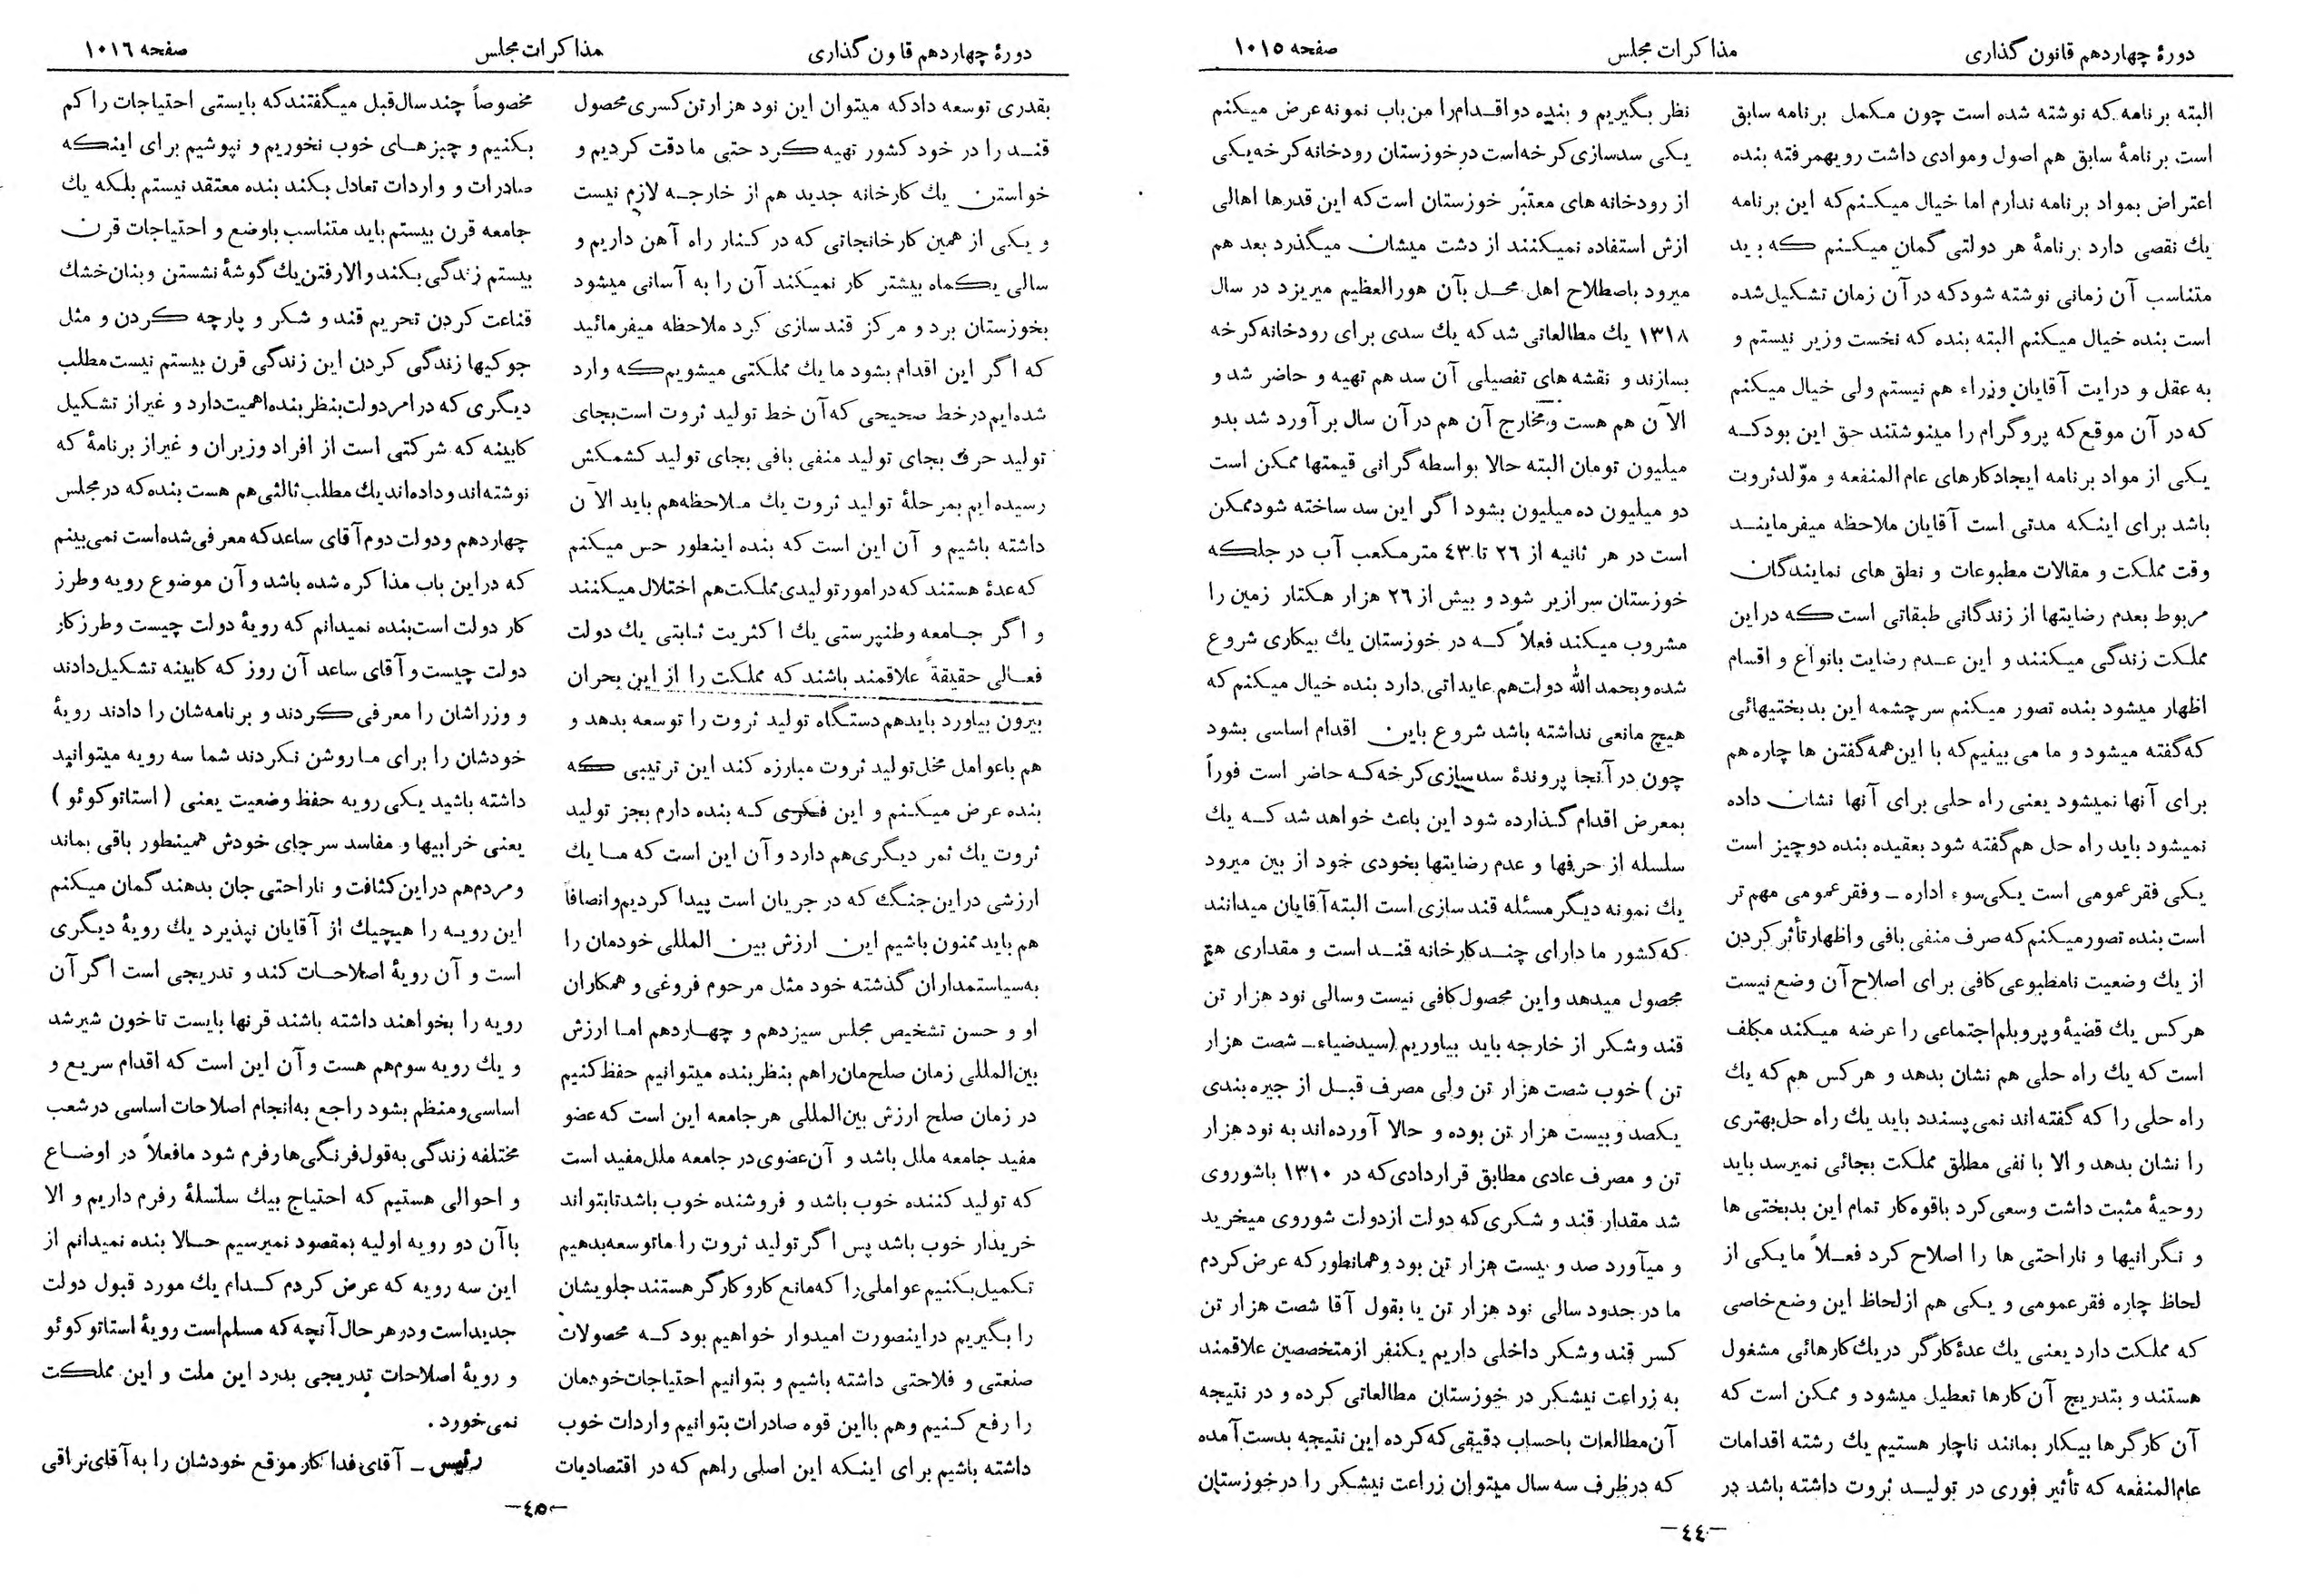 دورهٔ چهاردهم قانون گذاری
مذاکرات مجلس
صفحه ۱۰۱۵
البته برنامه که نوشته شده است چون مکمل برنامه سابق
است برنامهٔ سابق هم اصول وموادی داشت رویهمرفته بنده
اعتراض بمواد برنامه ندارم اما خیال میکنم که این برنامه
یك نقصی دارد برنامهٔ هر دولتی گمان میکنم که باید
متناسب آن زمانی نوشته شود که در آن زمان تشکیل شده
است بنده خیال میکنم البته بنده که نخست وزیر نیستم و
به عقل و درایت آقایان وزراء هم نیستم ولی خیال میکنم
که در آن موقع که پروگرام را مینوشتند حق این بود که
یکی از مواد برنامه ایجاد کارهای عام المنفعه و مولد ثروت
باشد برای اینکه مدتی است آقایان ملاحظه میفرمایند
وقت مملکت و مقالات مطبوعات و نطق های نمایندگان
مربوط بعدم رضایتها از زندگانی طبقاتی است که در این
مملکت زندگی میکنند و این عدم رضایت بانواع و اقسام
اظهار میشود بنده تصور میکنم سرچشمه این بدبختیهائی
که گفته میشود و ما می بینیم که با این همه گفتن ها چاره هم
برای آنها نمیشود یعنی راه حلی برای آنها نشان داده
نمیشود باید راه حل هم گفته شود بعقیده بنده دو چیز است
یکی فقر عمومی است یکی سوء اداره ــ وفقر عمومی مهم تر
است بنده تصور میکنم که صرف منفی بافی و اظهار تأثر کردن
از یك وضعیت نامطبوعی کافی برای اصلاح آن وضع نیست
هر کس یك قضیهٔ و پروبلم اجتماعی را عرضه میکند مکلف
است که یك راه حلی هم نشان بدهد و هر کس هم که یك
راه حلی را که گفته اند نمی پسندد باید یك راه حل بهتری
را نشان بدهد و الا با نفی مطلق مملکت بجائی نمیرسد باید
روحیهٔ مثبت داشت وسعی کرد باقوه کار تمام این بدبختی ها
و نگرانیها و ناراحتی ها را اصلاح کرد فعلاً ما یکی از
لحاظ چاره فقر عمومی و یکی هم از لحاظ این وضع خاصی
که مملکت دارد یعنی یك عدهٔ کارگر در یك کارهائی مشغول
هستند و بتدریج آن کارها تعطیل میشود و ممکن است که
آن کارگرها بیکار بمانند ناچار هستیم یك رشته اقدامات
عام المنفعه که تأثیر فوری در تولید ثروت داشته باشد در
نظر بگیریم و بنده دو اقدام را من باب نمونه عرض میکنم
یکی سد سازی کرخه است در خوزستان رودخانه کرخه یکی
از رودخانه های معتبر خوزستان است که این قدرها اهالی
ازش استفاده نمیکنند از دشت میشان میگذرد بعد هم
میرود باصطلاح اهل محل بآن هور العظیم میریزد در سال
۱۳۱۸ یك مطالعاتی شد که یك سدی برای رودخانه کرخه
بسازند و نقشه های تفصیلی آن سد هم تهیه و حاضر شد و
الان هم هست و مخارج آن هم در آن سال بر آورد شد بدو
میلیون تومان البته حالا بواسطه گرانی قیمتها ممکن است
دو میلیون ده میلیون بشود اگر این سد ساخته شود ممکن
است در هر ثانیه از ۲۶ تا ۴۳ متر مکعب آب در جلگه
خوزستان سرازیر شود و بیش از ۲۶ هزار هکتار زمین را
مشروب میکند فعلاً که در خوزستان یك بیکاری شروع
شده وبحمد الله دولت هم عایداتی دارد بنده خیال میکنم که
هیچ مانعی نداشته باشد شروع باین اقدام اساسی بشود
چون در آنجا پروندهٔ سد سازی کرخه که حاضر است فوراً
بمعرض اقدام گذارده شود این باعث خواهد شد که یك
سلسله از حرفها و عدم رضایتها بخودی خود از بین میرود
یك نمونه دیگر مسئله قند سازی است البته آقایان میدانند
که کشور ما دارای چند کارخانه قند است و مقداری هم
محصول میدهد واین محصول کافی نیست وسالی نود هزار تن
قند و شکر از خارجه باید بیاوریم (سید ضیاء ــ شصت هزار
تن) خوب شصت هزار تن ولی مصرف قبل از جیره بندی
یکصد و بیست هزار تن بوده و حالا آورده اند به نود هزار
تن و مصرف عادی مطابق قراردادی که در ۱۳۱۰ باشوروی
شد مقدار قند و شکری که دولت از دولت شوروی میخرید
و میآورد صد و بیست هزار تن بود و همانطور که عرض کردم
ما در حدود سالی نود هزار تن یا بقول آقا شصت هزار تن
کسر قند و شکر داخلی داریم یکنفر از متخصصین علاقمند
به زراعت نیشکر در خوزستان مطالعاتی کرده و در نتیجه
آن مطالعات باحساب دقیقی که کرده این نتیجه بدست آمده
که در ظرف سه سال میتوان زراعت نیشکر را در خوزستان
ــ۴۴ــ
دورهٔ چهاردهم قاون گذاری
مذاکرات مجلس
صفحه ۱۰۱۶
بقدری توسعه داد که میتوان این نود هزار تن کسری محصول
قند را در خود کشور تهیه کرد حتی ما دقت کردیم و
خواستن یك کارخانه جدید هم از خارجه لازم نیست
و یکی از همین کارخانجاتی که در کنار راه آهن داریم و
سالی یکماه بیشتر کار نمیکند آن را به آسانی میشود
بخوزستان برد و مرکز قند سازی کرد ملاحظه میفرمائید
که اگر این اقدام بشود ما یك مملکتی میشویم که وارد
شده ایم در خط صحیحی که آن خط تولید ثروت است بجای
تولید حرف بجای تولید منفی بافی بجای تولید کشمکش
رسیده ایم بمرحلهٔ تولید ثروت یك ملاحظه هم باید الان
داشته باشیم و آن این است که بنده اینطور حس میکنم
که عدهٔ هستند که در امور تولیدی مملکت هم اختلال میکنند
و اگر جامعه وطنپرستی یك اکثریت ثابتی یك دولت
فعالی حقیقةً علاقمند باشند که مملکت را از این بحران
بیرون بیاورد باید هم دستگاه تولید ثروت را توسعه بدهد و
هم باعوامل مخل تولید ثروت مبارزه کند این ترتیبی که
بنده عرض میکنم و این فکری که بنده دارم بجز تولید
ثروت یك ثمر دیگری هم دارد و آن این است که ما یك
ارزشی در این جنگ که در جریان است پیدا کردیم وانصافاً
هم باید ممنون باشیم این ارزش بین المللی خودمان را
به سیاستمداران گذشته خود مثل مرحوم فروغی و همکاران
او و حسن تشخیص مجلس سیزدهم و چهاردهم اما ارزش
بین المللی زمان صلح مان راهم بنظر بنده میتوانیم حفظ کنیم
در زمان صلح ارزش بین المللی هر جامعه این است که عضو
مفید جامعه ملل باشد و آن عضوی در جامعه ملل مفید است
که تولید کننده خوب باشد و فروشنده خوب باشد تا بتواند
خریدار خوب باشد پس اگر تولید ثروت را ما توسعه بدهیم
تکمیل بکنیم عواملی را که مانع کار و کارگر هستند جلویشان
را بگیریم در اینصورت امیدوار خواهیم بود که محصولات
صنعتی و فلاحتی داشته باشیم و بتوانیم احتیاجات خودمان
را رفع کنیم وهم بااین قوه صادرات بتوانیم واردات خوب
داشته باشیم برای اینکه این اصلی راهم که در اقتصادیات
مخصوصاً چند سال قبل میگفتند که بایستی احتیاجات را کم
بکنیم و چیزهای خوب نخوریم و نپوشیم برای اینکه
صادرات و واردات تعادل بکند بنده معتقد نیستم بلکه یك
جامعه قرن بیستم باید متناسب باوضع و احتیاجات قرن
بیستم زندگی بکند والا رفتن یك گوشهٔ نشستن و بنان خشك
قناعت کردن تحریم قند و شکر و پارچه کردن و مثل
جوکیها زندگی کردن این زندگی قرن بیستم نیست مطلب
دیگری که در امر دولت بنظر بنده اهمیت دارد و غیر از تشکیل
کابینه که شرکتی است از افراد وزیران و غیر از برنامهٔ که
نوشته اند و داده اند یك مطلب ثالثی هم هست بنده که در مجلس
چهاردهم و دولت دوم آقای ساعد که معرفی شده است نمی بینم
که در این باب مذاکره شده باشد و آن موضوع رویه و طرز
کار دولت است بنده نمیدانم که رویهٔ دولت چیست و طرز کار
دولت چیست و آقای ساعد آن روز که کابینه تشکیل دادند
و وزراشان را معرفی کردند و برنامه شان را دادند رویهٔ
خودشان را برای ما روشن نکردند شما سه رویه میتوانید
داشته باشید یکی رویه حفظ وضعیت یعنی (استاتو کوئو)
یعنی خرابیها و مفاسد سرجای خودش همینطور باقی بماند
و مردم هم در این کثافت و ناراحتی جان بدهند گمان میکنم
این رویه را هیچیك از آقایان نپذیرد یك رویهٔ دیگری
است و آن رویهٔ اصلاحات کند و تدریجی است اگر آن
رویه را بخواهند داشته باشند قرنها بایست تا خون شیر شد
و یك رویه سوم هم هست و آن این است که اقدام سریع و
اساسی و منظم بشود راجع به انجام اصلاحات اساسی در شعب
مختلفه زندگی به قول فرنگی ها رفرم شود ما فعلاً در اوضاع
و احوالی هستیم که احتیاج بیك سلسلهٔ رفرم داریم و الا
با آن دو رویه اولیه بمقصود نمیرسیم حالا بنده نمیدانم از
این سه رویه که عرض کردم کدام یك مورد قبول دولت
جدید است و در هر حال آنچه که مسلم است رویهٔ استاتو کوئو
و رویهٔ اصلاحات تدریجی بدرد این ملت و این مملکت
نمی خورد.
رئیس ــ آقای فداکار موقع خودشان را به آقای نراقی
ــ۴۵ــ